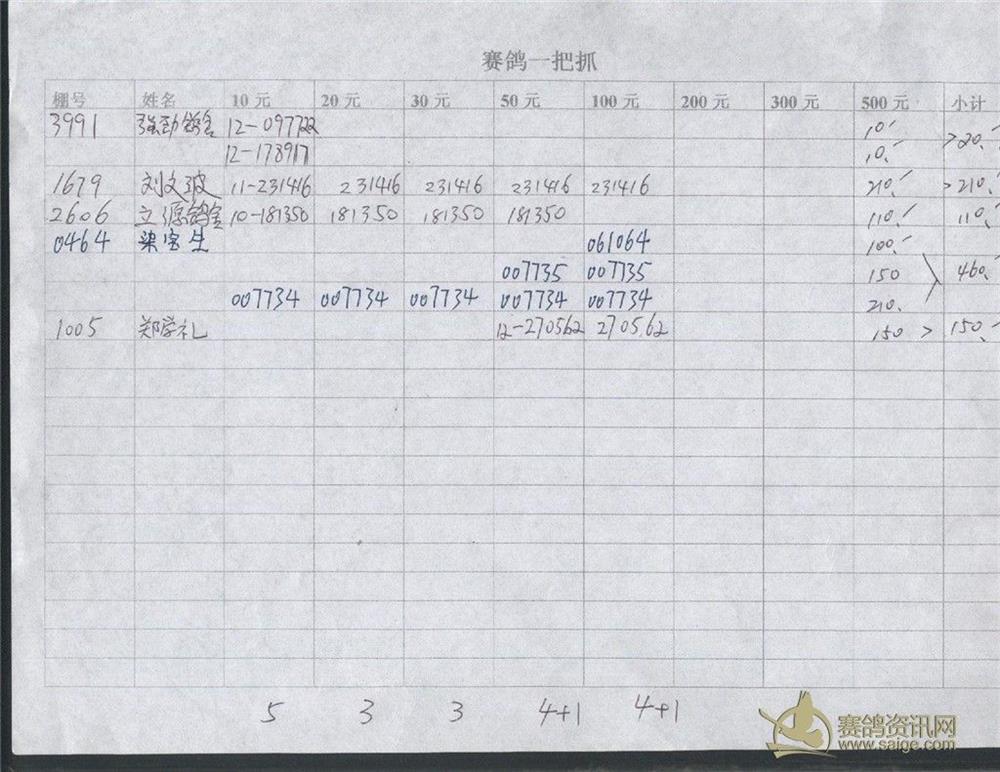 赛鸽一把抓
棚号 姓名 10 元 20 元 30 元 50 元 100 元 200 元 300 元 500 元 小计
3991 强劲鸽舍 12-097722 10.-
12-178917 10.- >20.-
1679 刘文波 11-231416 231416 231416 231416 231416 210.- >210.-
2606 立源鸽舍 10-181350 181350 181350 181350 110.- 110.-
0464 梁宝生 061064 100.-
007735 007735 150 460.-
007734 007734 007734 007734 007734 210.
1005 郑学礼 12-270562 270562 150 > 150.-
5 3 3 4+1 4+1
赛鸽资讯网
www.saige.com